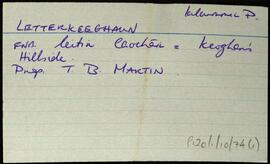 Kilcummin P.
LETTERKEEGHAUN
FNR. Leitir Caocháin = Keoghan's
Hillside.
Prop. T. B. MARTIN
P120/1/10/74(1)